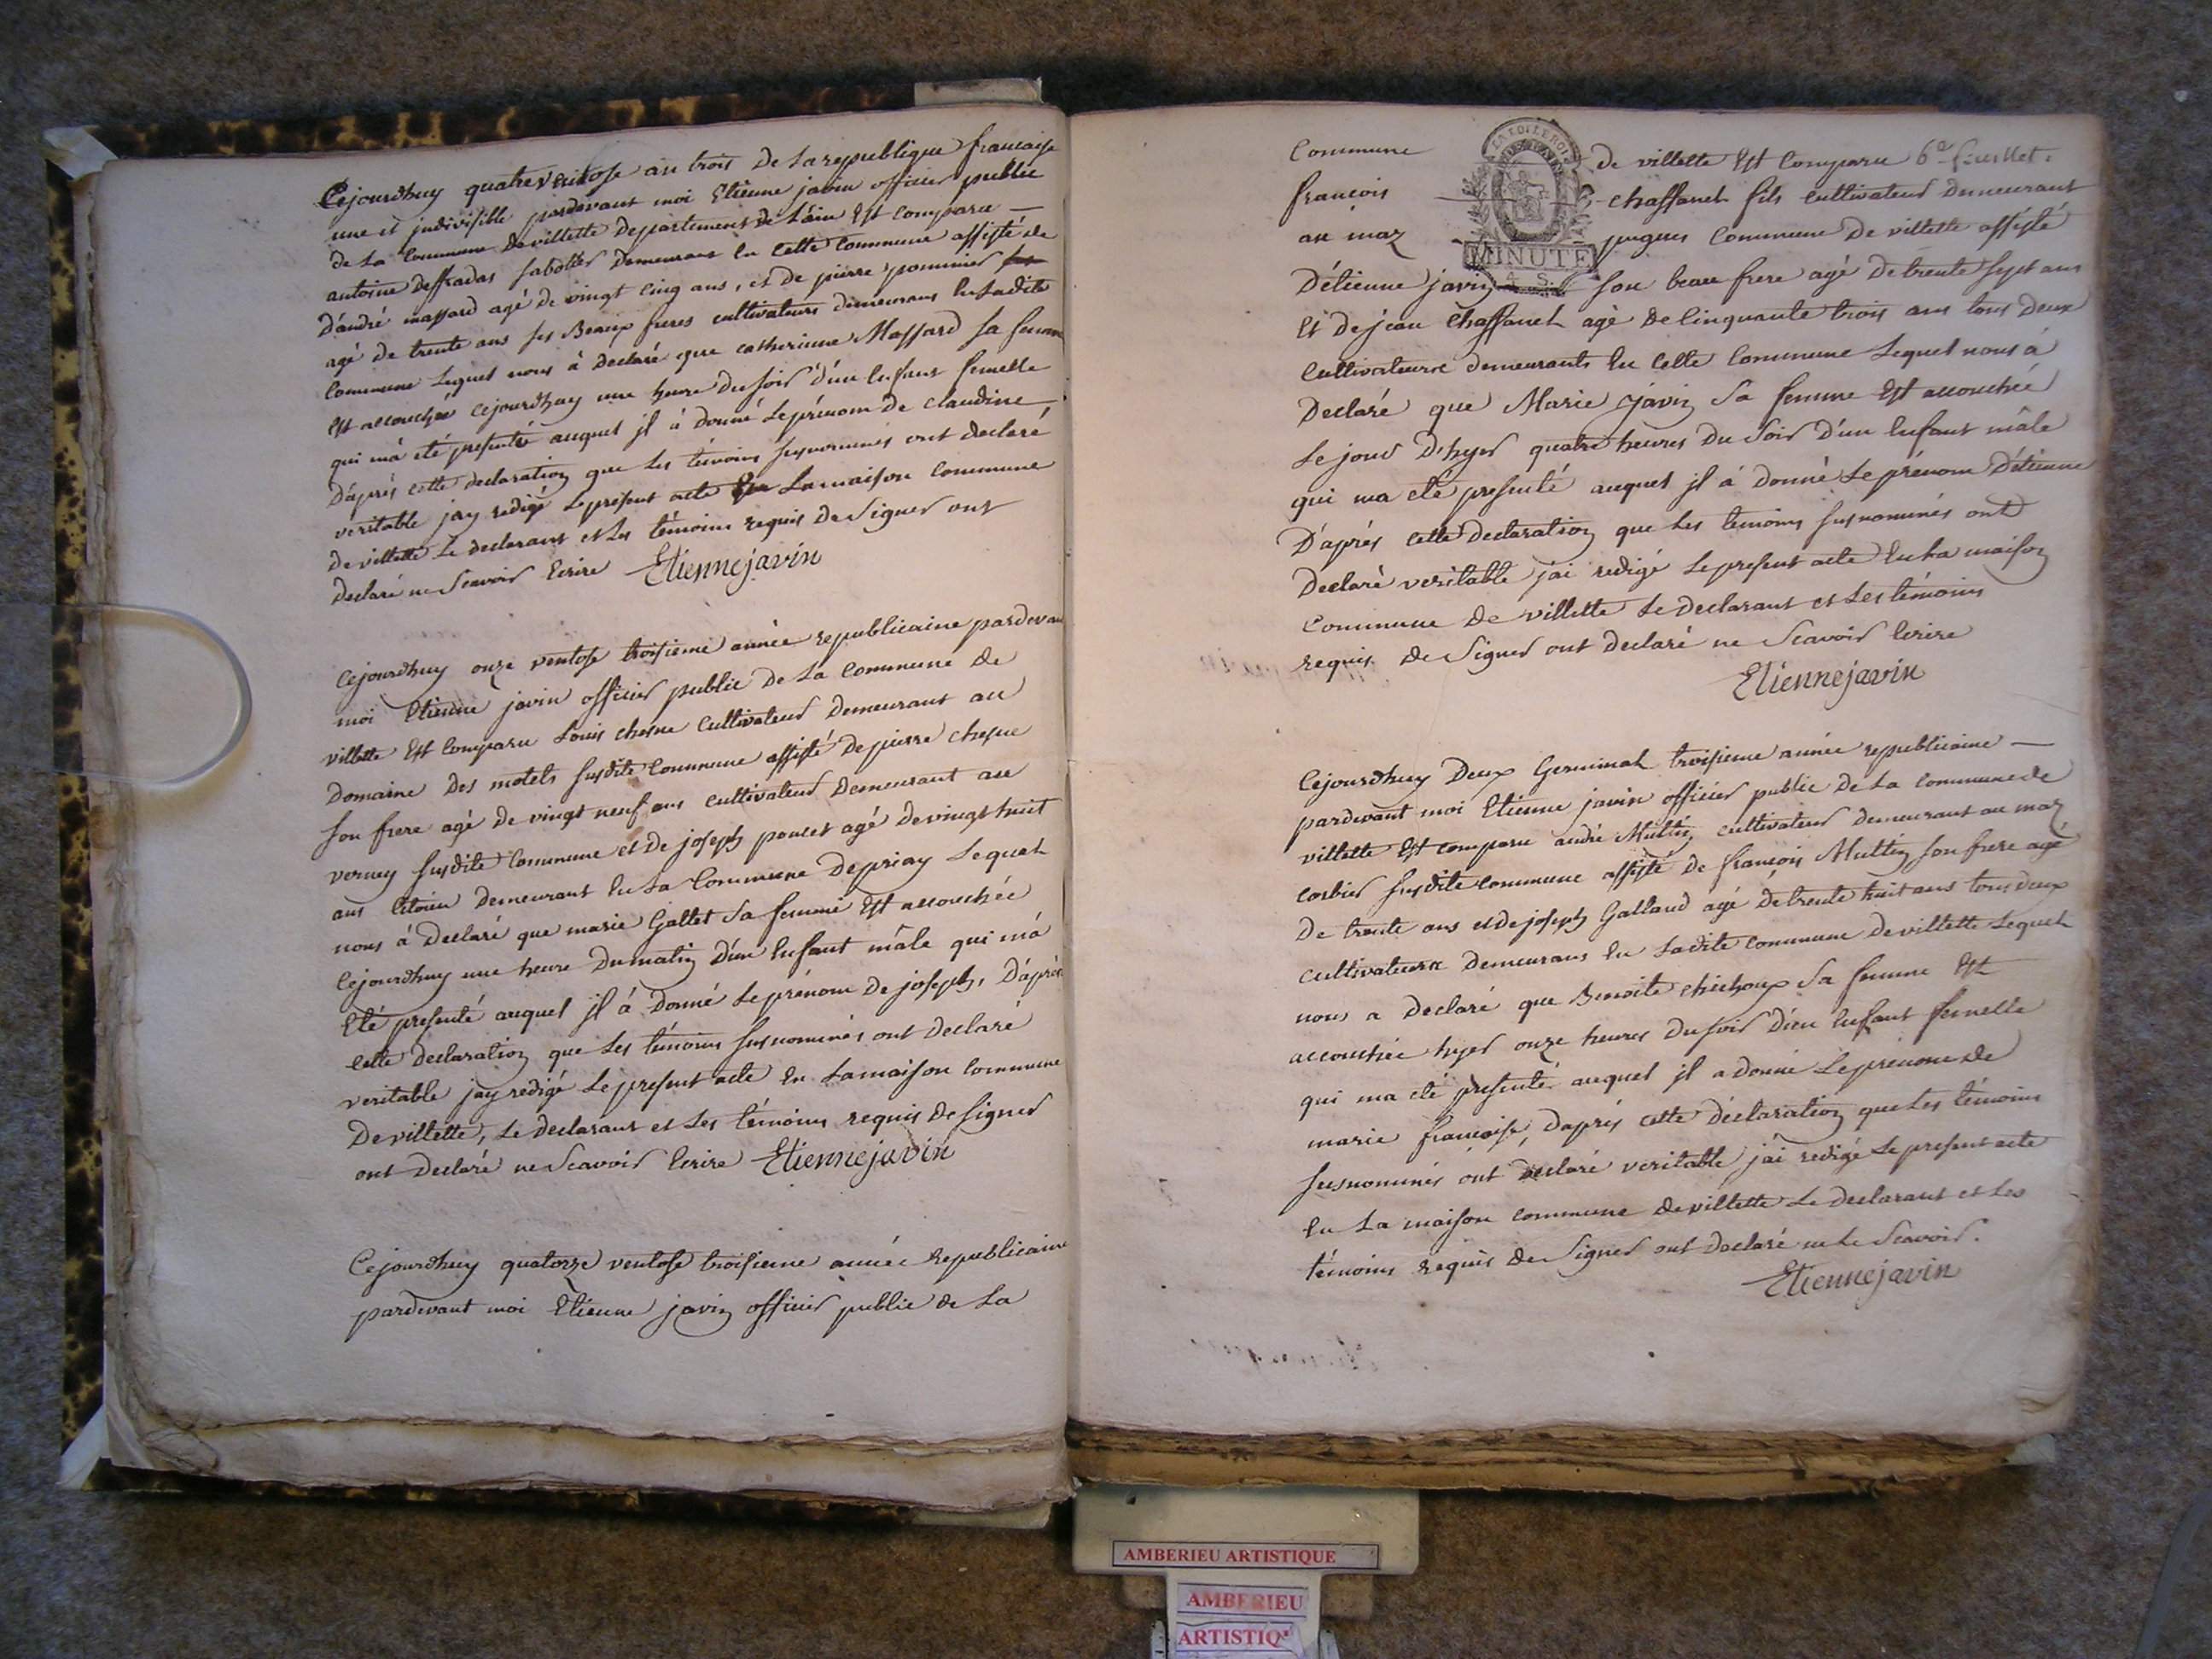 Cejourdhuy quatre ventose an trois de la republique francaise
une et jndivisible pardevant moi Etienne javin officier public
de la Commune de villette departement de L'ain Est comparu —
antoine deffradas sabottier demeurant En Cette Commune assisté de
D'andré massard agé de vingt cinq ans, et de pierre pommier
agé de trente ans ses Beaux freres cultivateurs demeurans En ladite
Commune Lequel nous à declaré que catherinne Massard sa femme
Est accouchée cejourdhuy une heure du soir d'un Enfant femelle
qui m'a été presenté auquel jl à donné Le prénom de claudine
D'après cette declaration que Les témoins susnommés ont declaré
veritable jay redigé Le present acte La maison commune
de villette Le declarant et Les témoins requis de Signer ont
declaré ne Scavoir Ecrire Etienne javin
Cejourdhuy onze ventose troisieme année republicaine pardevant
moi Etienne javin officier public de La Commune de
villette Est Comparu Louis chesne Cultivateur Demeurant au
Domaine Des motels susdite Commune assisté de pierre chesne
son frere agé de vingt neuf ans cultivateur demeurant au
verney susdite Commune et de joseph poncet agé de vingt huit
ans Citoien demeurant En La Commune de priay Lequel
nous à Declaré que marie Gallet Sa femme Est accouchée
Cejourdhuy une heure Du matin d'un Enfant mâle qui m'a
Eté presenté auquel jl à Donné Le prénom de joseph, D'après
Cette declaration que Les témoins susnommés ont declaré
veritable jay redigé Le present acte En La maison commune
De villette, Le declarant et Les témoins requis de signer
ont Declaré ne Scavoir Ecrire Etienne javin
Cejourdhuy quatorze ventose troisieme année Republicaine
pardevant moi Etienne javin officier public de La
Commune de villette Est Comparu 6e feuillet.
francois chaffanel fils cultivateur demeurant
au maz pugues Commune De villette assisté
LA LOI LE ROI
MINUTE
D'étienne javin son beau frere agé de trente sept ans
Et de jean Chaffanel agé de Cinquante trois ans tous deux
Cultivateurs demeurants En Cette Commune Lequel nous à
Declaré que Marie javin Sa femme Est accouchée
Le jour D'hyer quatre heures Du Soir D'un Enfant mâle
qui ma eté presenté auquel jl à donné Le prénom D'étienne
D'après cette Declaration que Les temoins susnommés ont
Declaré veritable jai redigé Le present acte En La maison
Commune De villette Le declarant et Les témoins
requis De Signer ont declaré ne Scavoir Ecrire
Etienne javin
Cejourdhuy Deux Germinal troisieme année republicaine —
pardevant moi Etienne javin officier public De La commune de
villette Est comparu andré Multin, cultivateur demeurant au maz
corbier susdite commune assisté de françois Multin son frere agé
De trente ans et de joseph Galland agé de trente huit ans tous deux
cultivateurs demeurans En Ladite commune De villette Lequel
nous a declaré que Benoite chichoux Sa femme Est
accouchée hyer onze heures du soir D'un Enfant femelle
qui ma eté presenté auquel jl a donné Le prénom de
marie francoise, D'après cette déclaration que Les témoins
susnommés ont declaré veritable j'ai redigé Le present acte
En La maison commune de villette Le declarant et Les
témoins Requis de Signer ont declaré ne Le Scavoir.
Etienne javin
AMBERIEU ARTISTIQUE
AMBERIEU
ARTISTIQ